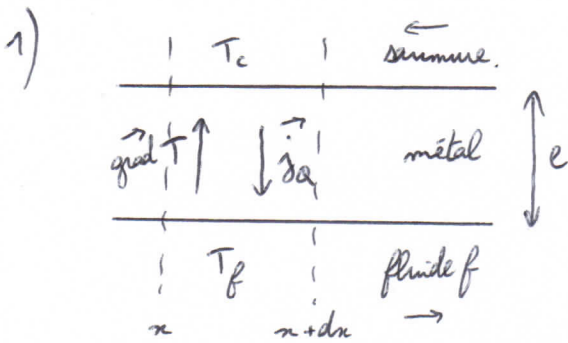 1)
T_c saumure.
grad T j_Q métal e
T_f fluide f
x x+dx